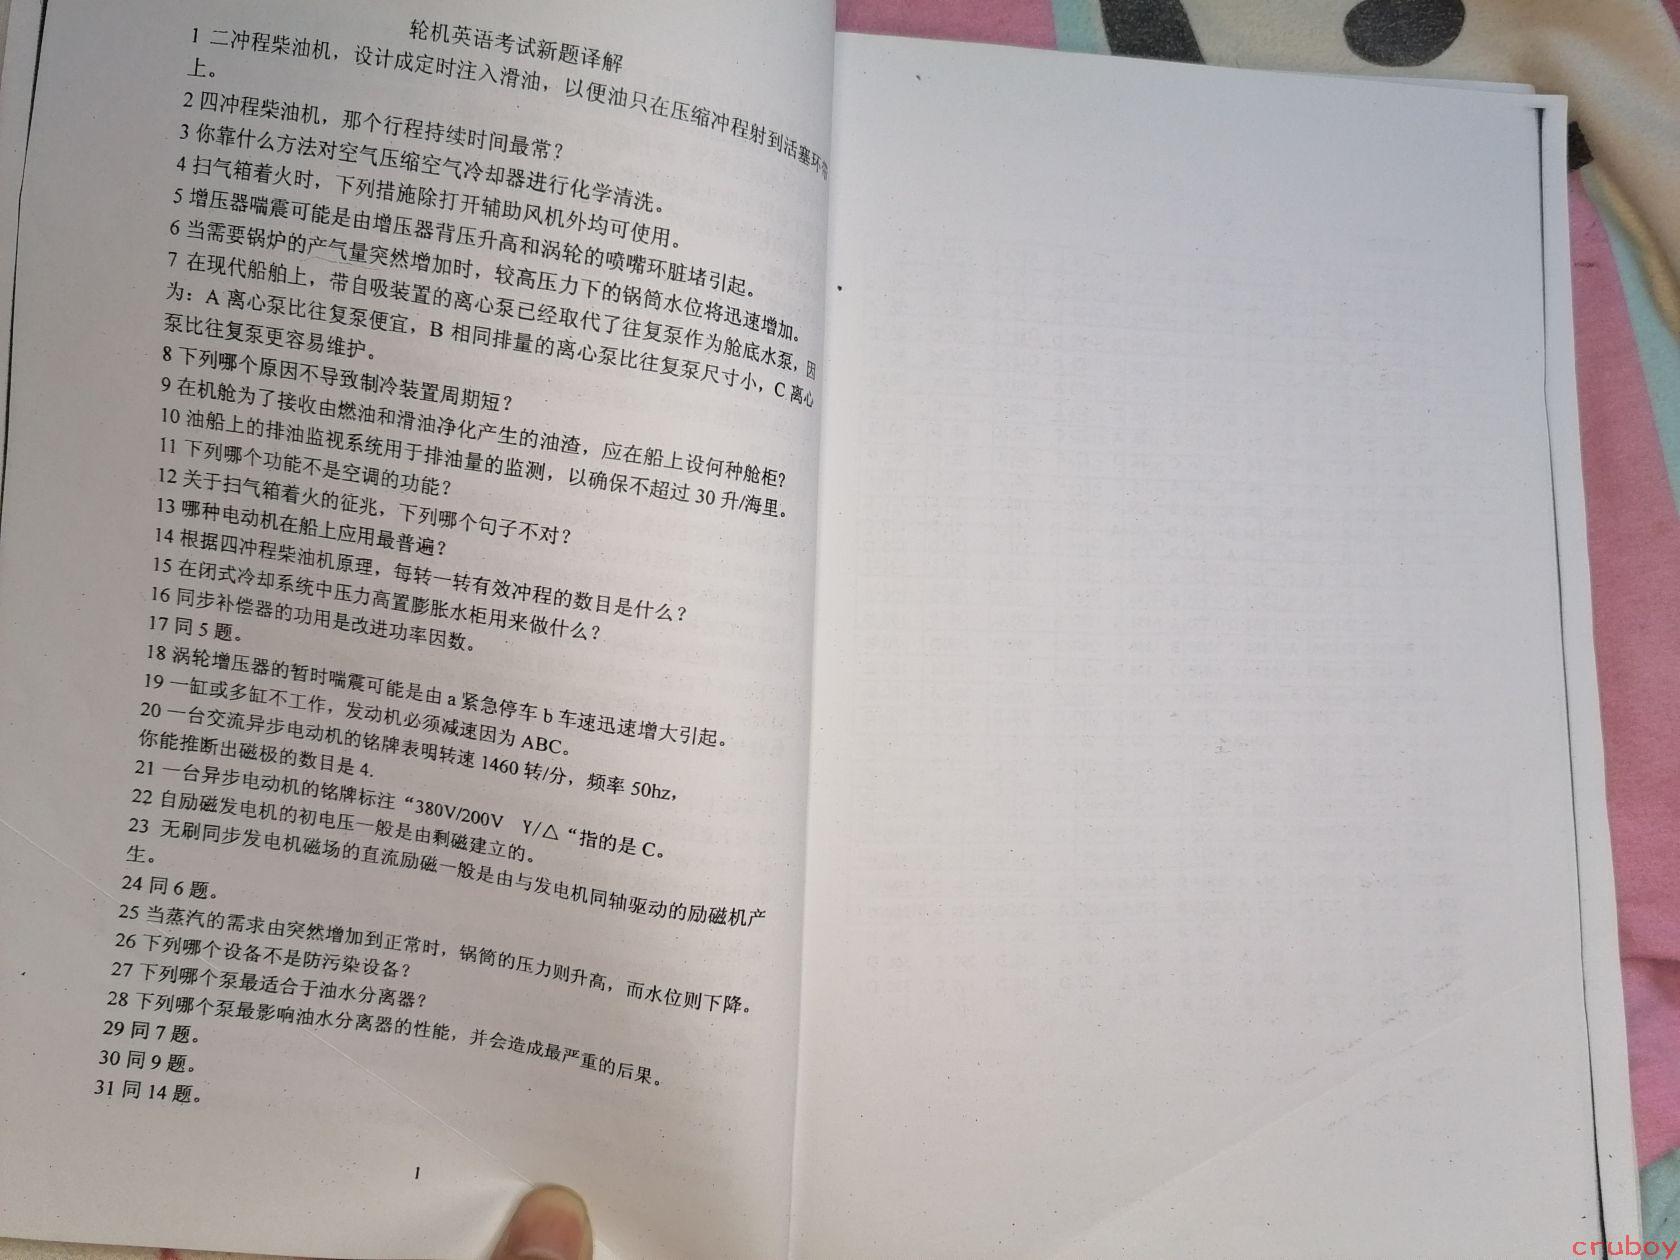 轮机英语考试新题译解
1 二冲程柴油机，设计成定时注入滑油，以便油只在压缩冲程射到活塞环带
上。
2 四冲程柴油机，那个行程持续时间最常？
3 你靠什么方法对空气压缩空气冷却器进行化学清洗。
4 扫气箱着火时，下列措施除打开辅助风机外均可使用。
5 增压器喘震可能是由增压器背压升高和涡轮的喷嘴环脏堵引起。
6 当需要锅炉的产气量突然增加时，较高压力下的锅筒水位将迅速增加。
7 在现代船舶上，带自吸装置的离心泵已经取代了往复泵作为舱底水泵，因
为：A 离心泵比往复泵便宜，B 相同排量的离心泵比往复泵尺寸小，C 离心
泵比往复泵更容易维护。
8 下列哪个原因不导致制冷装置周期短？
9 在机舱为了接收由燃油和滑油净化产生的油渣，应在船上设何种舱柜？
10 油船上的排油监视系统用于排油量的监测，以确保不超过 30 升/海里。
11 下列哪个功能不是空调的功能？
12 关于扫气箱着火的征兆，下列哪个句子不对？
13 哪种电动机在船上应用最普遍？
14 根据四冲程柴油机原理，每转一转有效冲程的数目是什么？
15 在闭式冷却系统中压力高置膨胀水柜用来做什么？
16 同步补偿器的功用是改进功率因数。
17 同 5 题。
18 涡轮增压器的暂时喘震可能是由 a 紧急停车 b 车速迅速增大引起。
19 一缸或多缸不工作，发动机必须减速因为 ABC。
20 一台交流异步电动机的铭牌表明转速 1460 转/分，频率 50hz，
你能推断出磁极的数目是 4.
21 一台异步电动机的铭牌标注“380V/200V Y/△“指的是 C。
22 自励磁发电机的初电压一般是由剩磁建立的。
23 无刷同步发电机磁场的直流励磁一般是由与发电机同轴驱动的励磁机产
生。
24 同 6 题。
25 当蒸汽的需求由突然增加到正常时，锅筒的压力则升高，而水位则下降。
26 下列哪个设备不是防污染设备？
27 下列哪个泵最适合于油水分离器？
28 下列哪个泵最影响油水分离器的性能，并会造成最严重的后果。
29 同 7 题。
30 同 9 题。
31 同 14 题。
1
cruboy